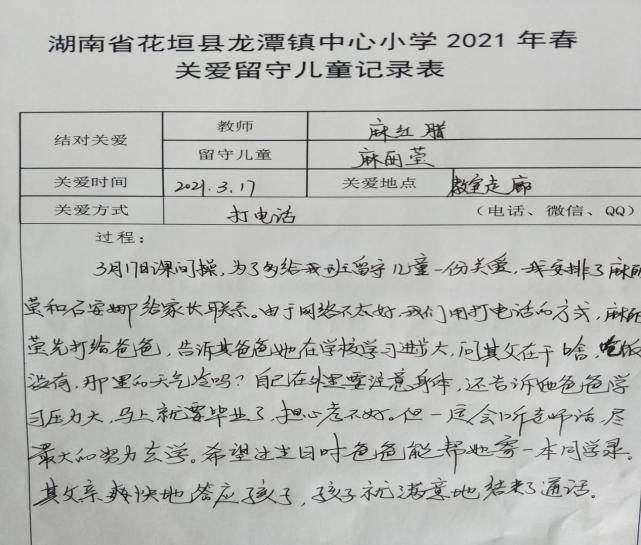 湖南省花垣县龙潭镇中心小学 2021 年春
关爱留守儿童记录表
结对关爱 教师 麻红腊
留守儿童 麻丽莹
关爱时间 2021.3.17 关爱地点 教室走廊
关爱方式 打电话 （电话、微信、QQ）
过程：
3月17日课间操，为了多给我班留守儿童一份关爱，我安排了麻丽
莹和石安娜给家长联系。由于网络不太好，我们用打电话的方式，麻丽
莹先打给爸爸，告诉其爸爸她在学校学习进步大，问其父在干啥，吃饭
没有，那里的天气冷吗？自己在外里要注意身体，还告诉她爸爸学
习压力大，马上就要毕业了，担心考不好。但一定会听老师话，尽
最大的努力去学。希望过生日时爸爸能帮她寄一本同学录。
其父亲爽快地答应孩子，孩子就满意地结束了通话。